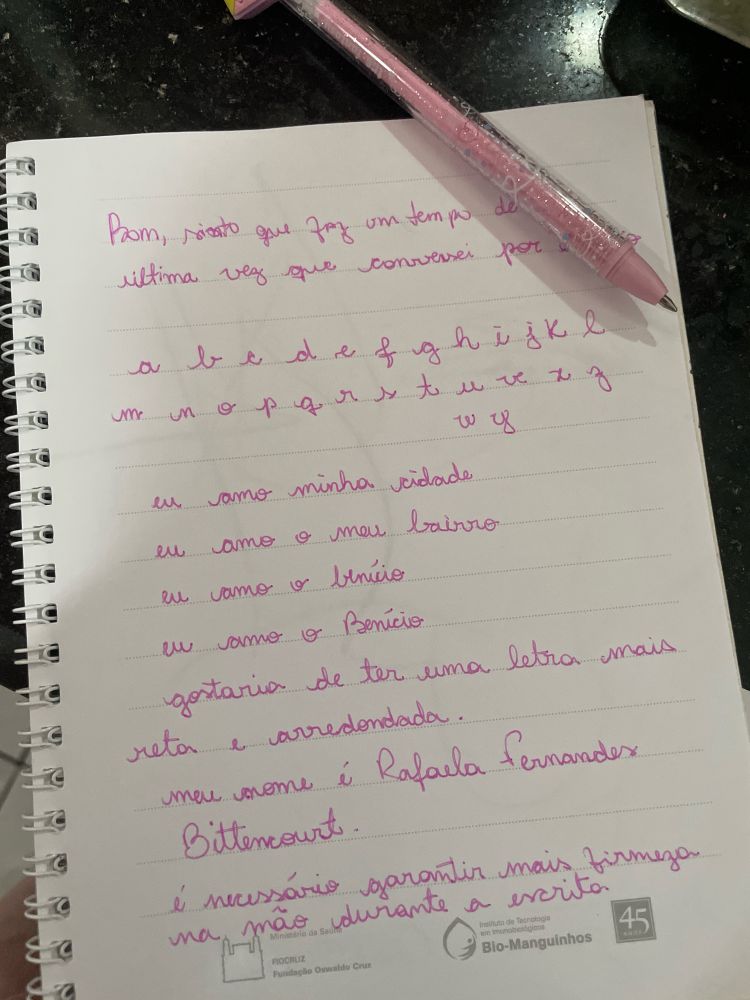 Bom, visto que faz um tempo de
última vez que conversei por
a b c d e f g h i j k l
m n o p q r s t u v e x z
w y
eu amo minha cidade
eu amo o meu bairro
eu amo o benício
eu amo o Benício
gostaria de ter uma letra mais
reta e arredondada.
meu nome é Rafaela Fernandes
Bittencourt.
é necessário garantir mais firmeza
na mão durante a escrita
Ministério da Saúde
FIOCRUZ
Fundação Oswaldo Cruz
Instituto de Tecnologia
em Imunobiológicos
Bio-Manguinhos
45
anos